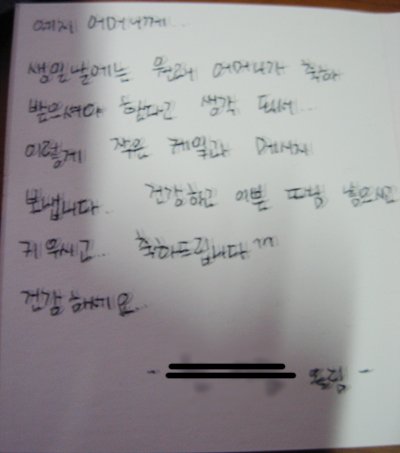 예지 어머니께...
생일날에는 원래 어머니가 축하
받으셔야 한다고 생각 되세...
이렇게 작은 케익과 메세지
보냅니다.. 건강하고 이쁜 따님 낳으시고
키우시고... 축하드립니다^^
건강하세요...
- 드림 -